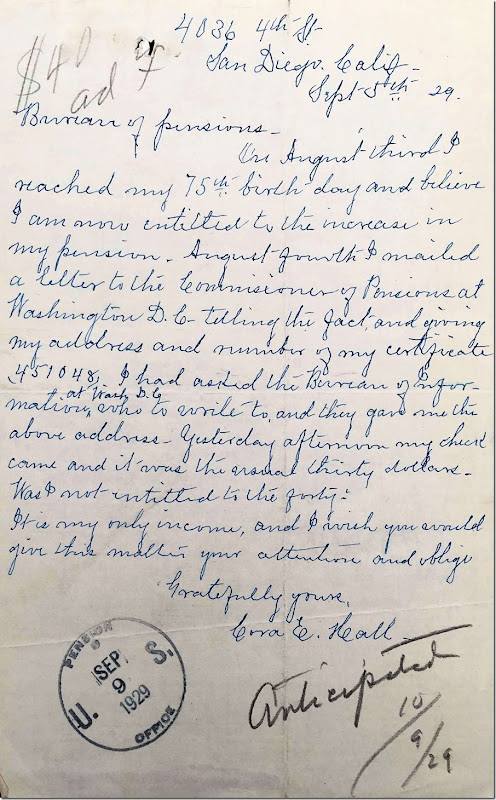 4036 4th St
San Diego. Calif-
Sept 5th 29.
$40
ad
Bureau of pensions-
On August third I
reached my 75th birth day and believe
I am now entitled to the increase in
my pension. August fourth I mailed
a letter to the Commisioner of Pensions at
Washington D.C- telling the fact, and giving
my address and number of my certificate
451048, I had asked the Bureau of Infor-
at Wash, D.C.
mation, who to write to, and they gave me the
above address- Yesterday afternoon my check
came and it was the usual thirty dollars-
Was I not entitled to the forty?
It is my only income, and I wish you would
give this matter your attention and oblige
Gratefully yours,
Cora E. Hall
PENSION
U. S.
SEP
9
1929
OFFICE
Anticipated
10/9/29